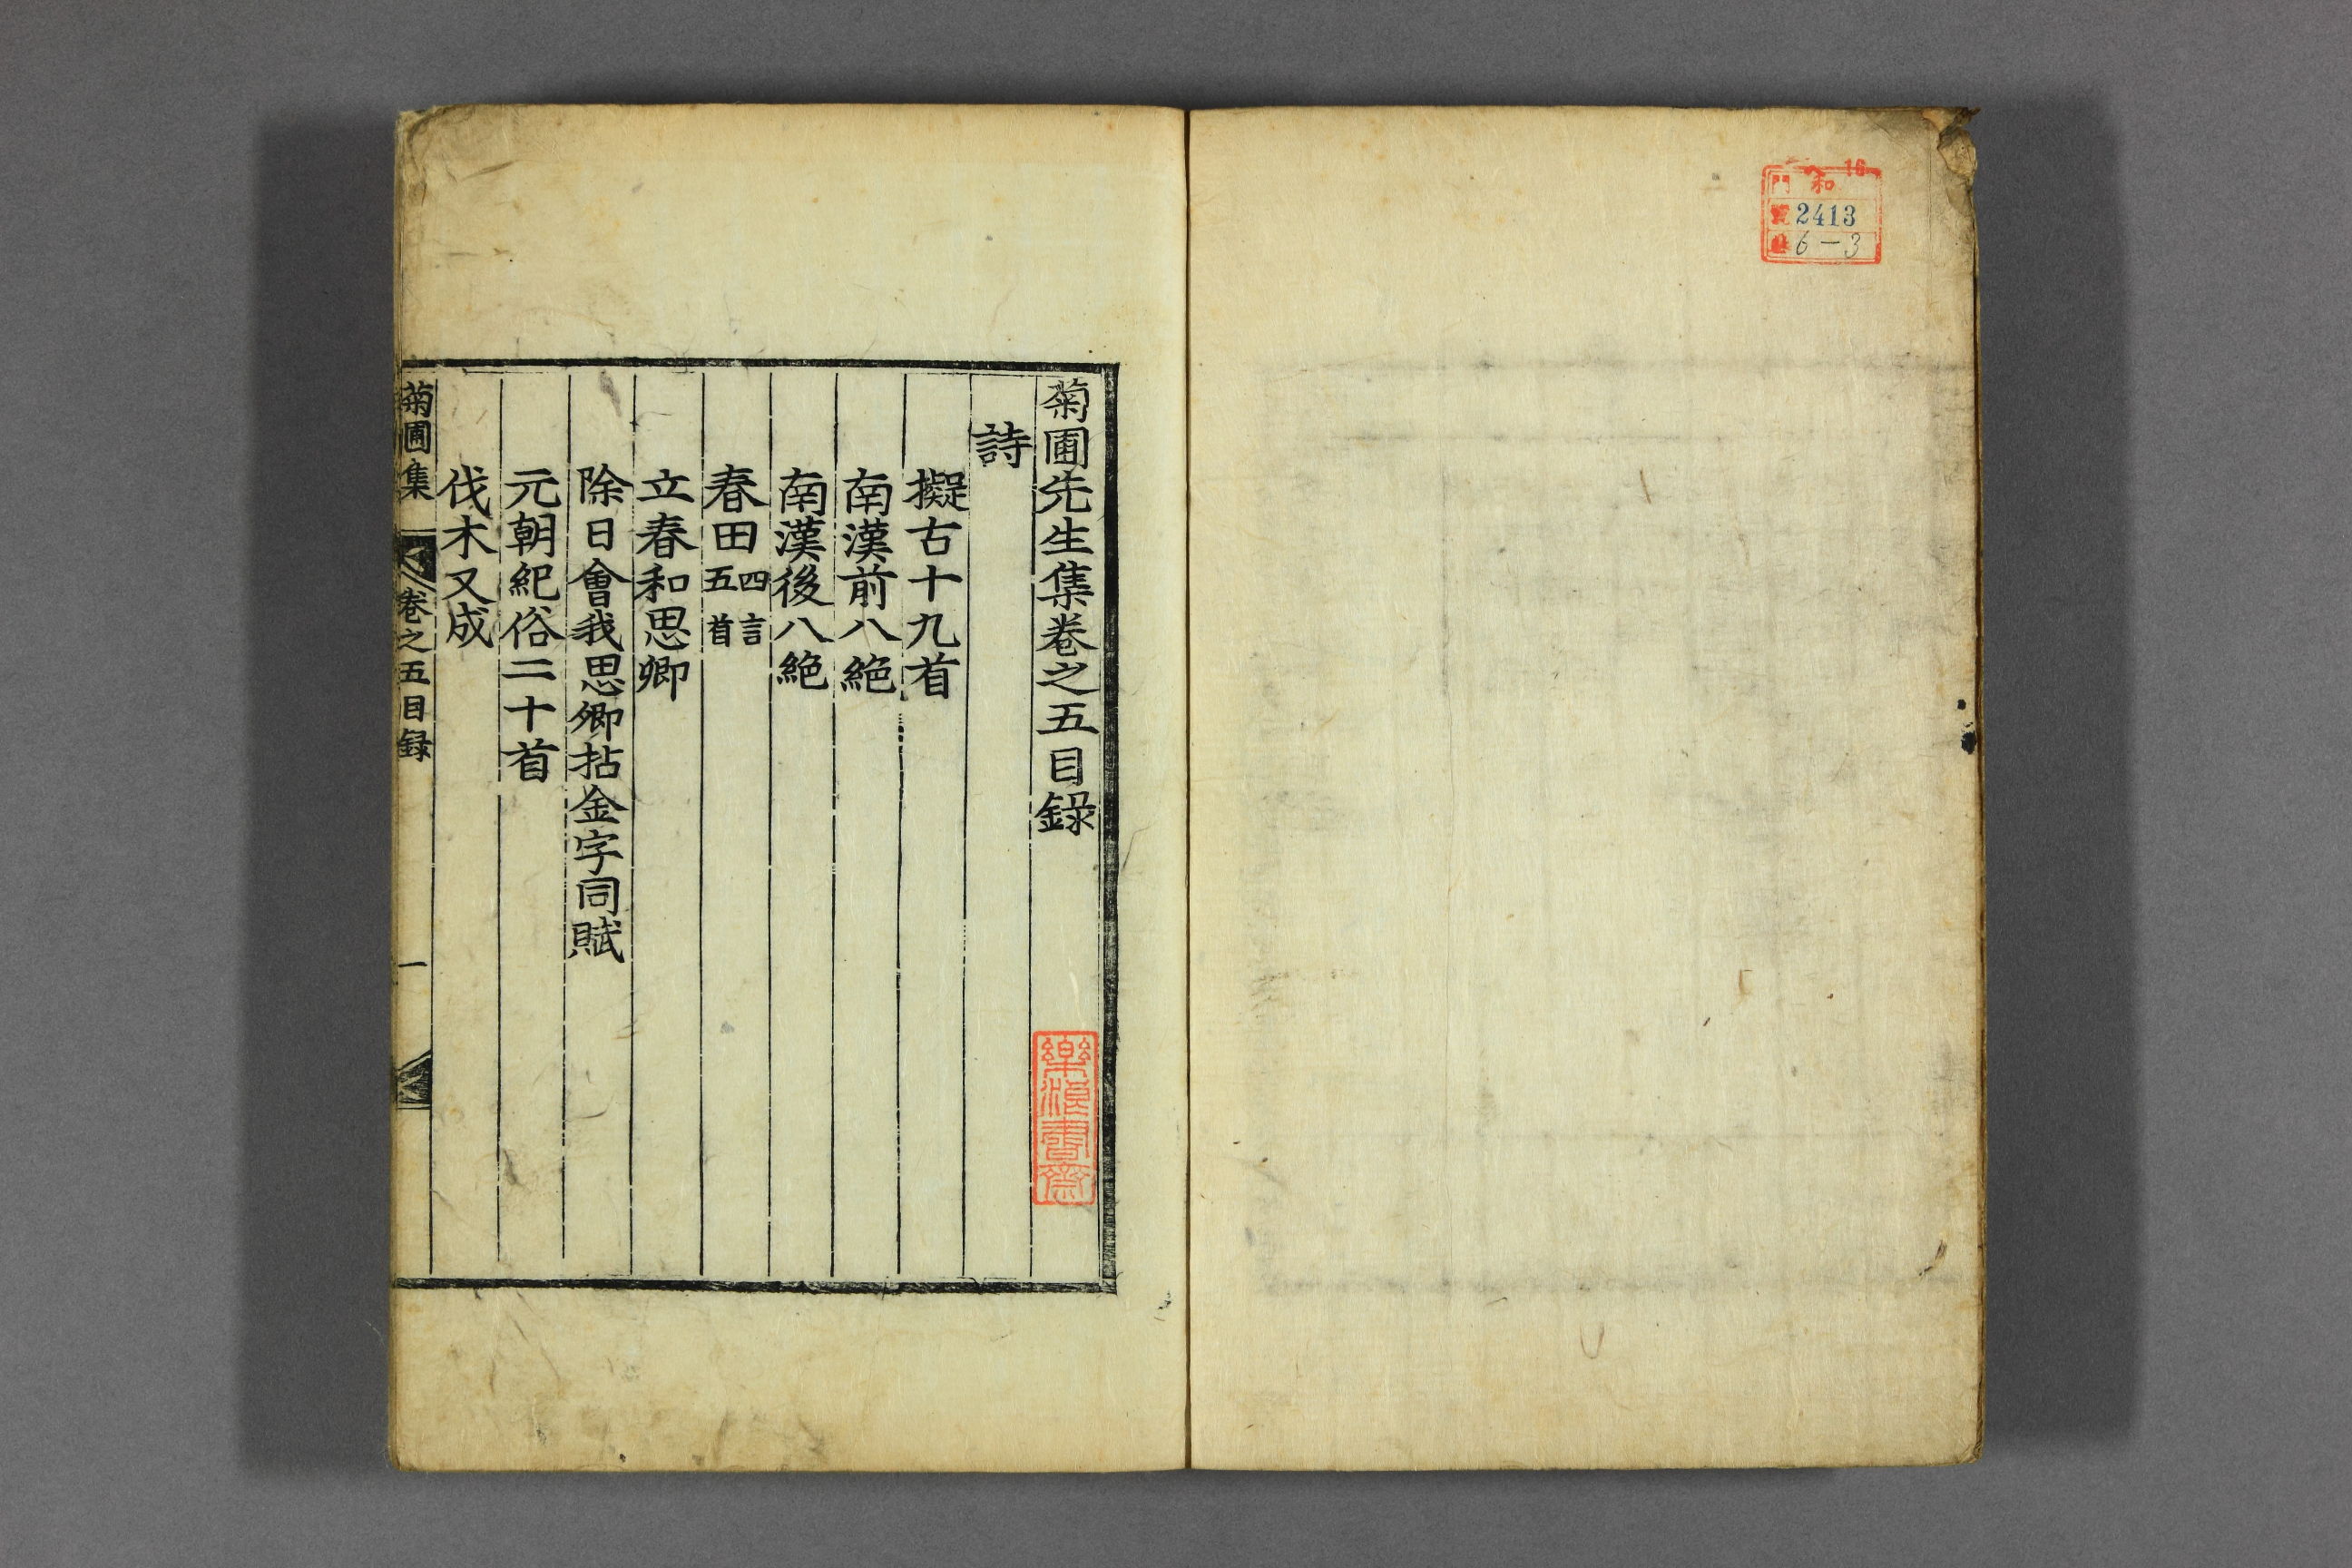 16
門 和
號 2413
卷 6-3
菊圃先生集卷之五目錄
詩
擬古十九首
南漢前八絶
南漢後八絶
春田四言五首
立春和思卿
除日會我思卿拈金字同賦
元朝紀俗二十首
伐木又成
菊圃集 卷之五目録 一
樂浪書齋